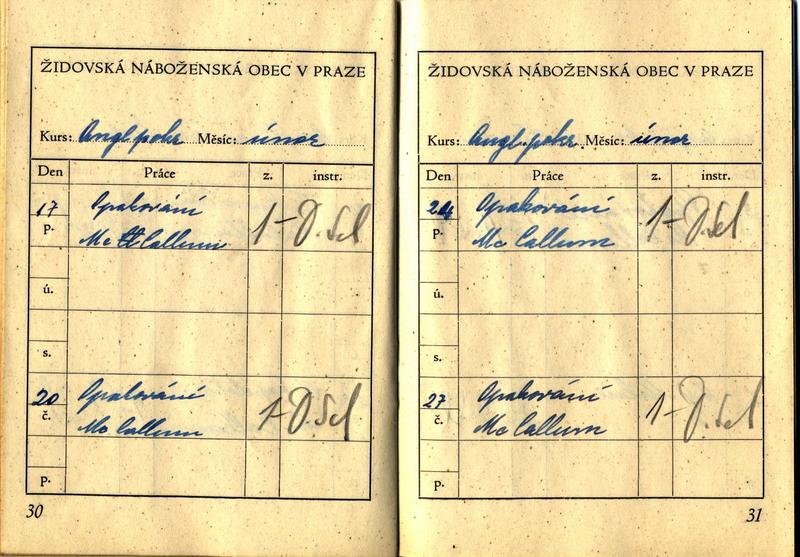 ŽIDOVSKÁ NÁBOŽENSKÁ OBEC V PRAZE
Kurs: Angl. pokr. Měsíc: únor
Den Práce z. instr.
17 Opakování
p. Mc Callum 1-
ú.
s.
20 Opakování
č. Mc Callum 1-
p.
30
ŽIDOVSKÁ NÁBOŽENSKÁ OBEC V PRAZE
Kurs: Angl. pokr. Měsíc: únor
Den Práce z. instr.
24 Opakování
p. Mc Callum 1-
ú.
s.
27 Opakování
č. Mc Callum 1-
p.
31